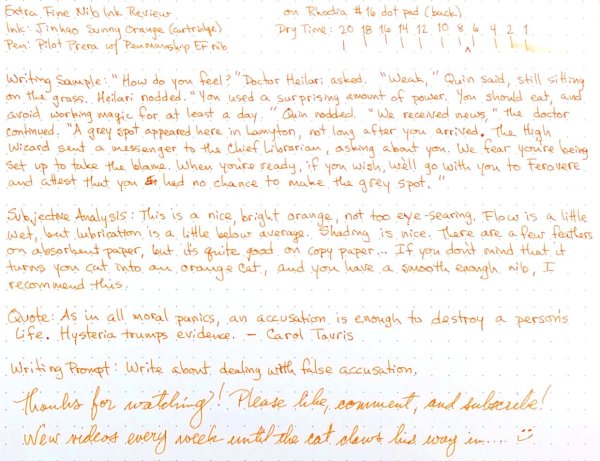 Extra Fine Nib Ink Review on Rhodia #16 dot pad (back)
Ink: Jinhao Sunny Orange (cartridge) Dry Time: 20 18 16 14 12 10 8 6 4 2 1
Pen: Pilot Prera w/ Penmanship EF nib
Writing Sample: "How do you feel?" Doctor Heilari asked. "Weak," Quin said, still sitting
on the grass. Heilari nodded. "You used a surprising amount of power. You should eat, and
avoid working magic for at least a day." Quin nodded. "We received news," the doctor
continued. "A grey spot appeared here in Lamyton, not long after you arrived. The High
Wizard sent a messenger to the Chief Librarian, asking about you. We fear you're being
set up to take the blame. When you're ready, if you wish, we'll go with you to Ferovere
and attest that you had no chance to make the grey spot."
Subjective Analysis: This is a nice, bright orange, not too eye-searing. Flow is a little
wet, but lubrication is a little below average. Shading is nice. There are a few feathers
on absorbent paper, but it's quite good on copy paper... If you don't mind that it
turns you cat into an orange cat, and you have a smooth enough nib, I
recommend this.
Quote: As in all moral panics, an accusation is enough to destroy a person's
life. Hysteria trumps evidence. - Carol Tavris
Writing Prompt: Write about dealing with false accusation.
Thanks for watching! Please like, comment, and subscribe!
New videos every week until the cat claws his way in....